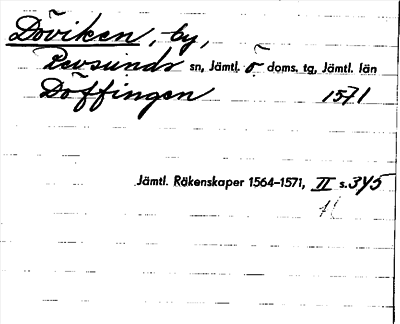 Döviken, by,
Revsunds sn, Jämtl. ö. doms. tg, Jämtl. län
Döffingen 1571
Jämtl. Räkenskaper 1564–1571, II s. 345